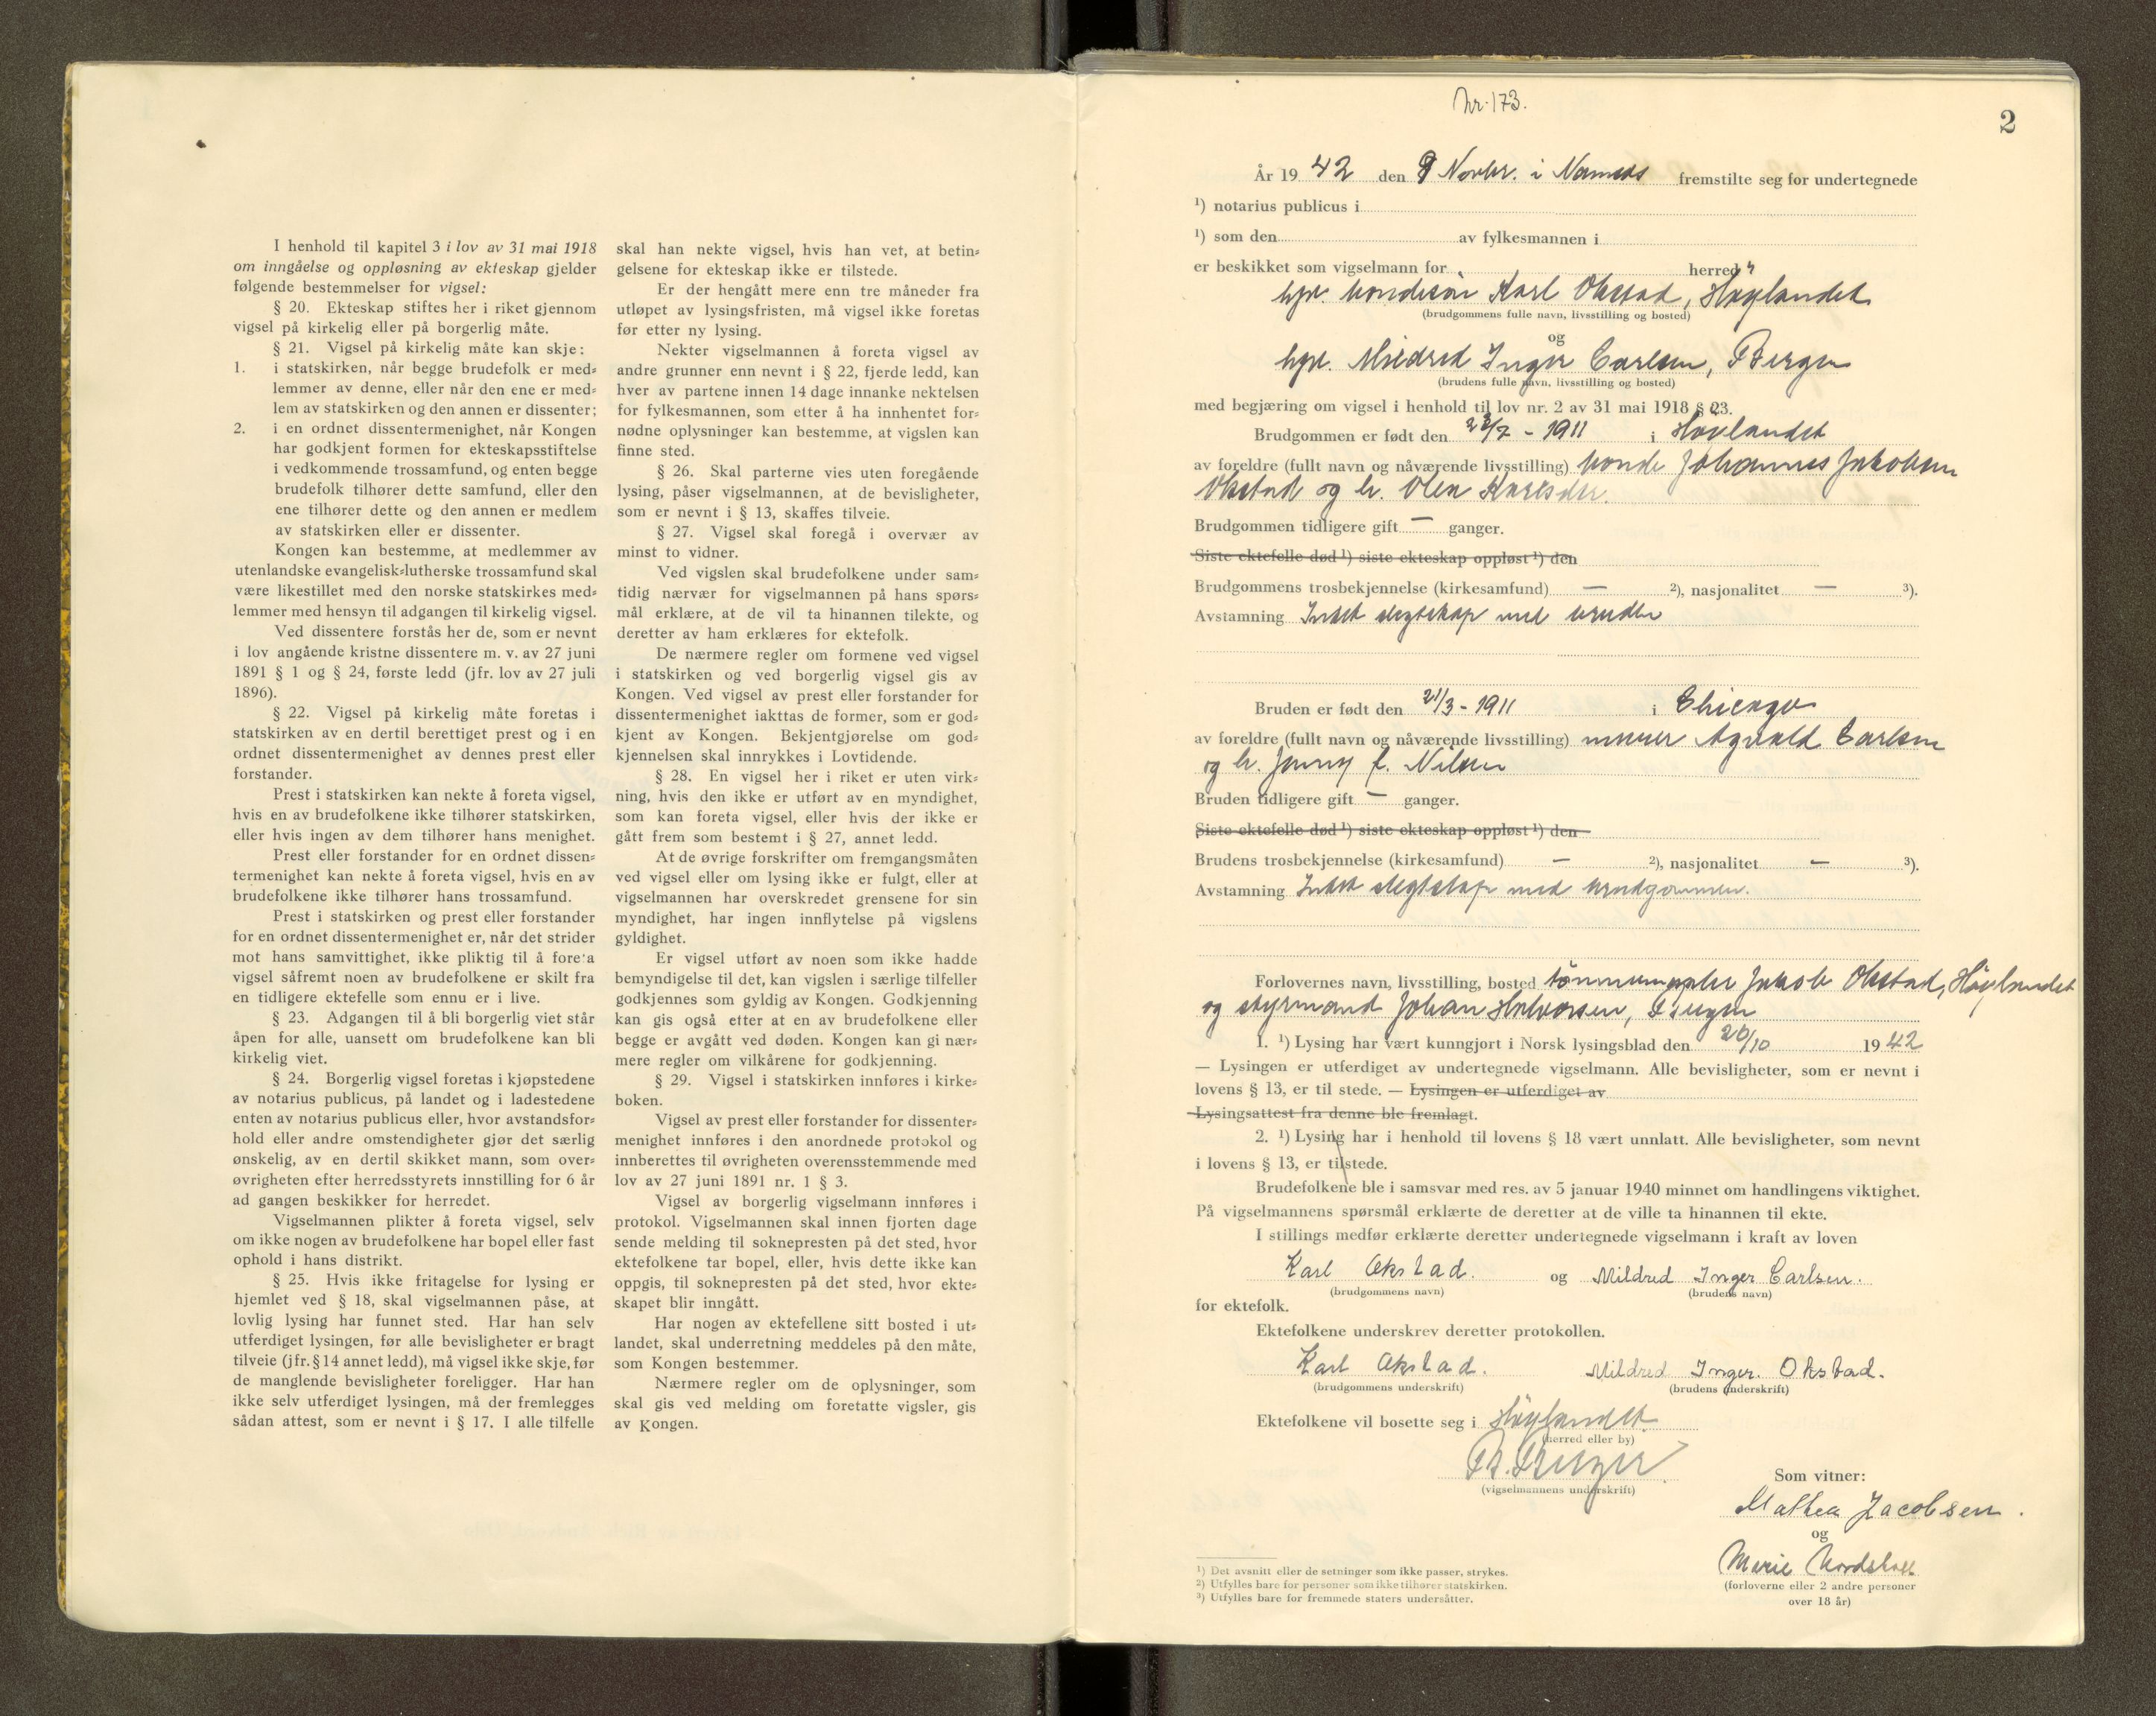 I henhold til kapitel 3 i lov av 31 mai 1918
om inngåelse og oppløsning av ekteskap gjelder
følgende bestemmelser for vigsel:
§ 20. Ekteskap stiftes her i riket gjennom
vigsel på kirkelig eller på borgerlig måte.
§ 21. Vigsel på kirkelig måte kan skje:
1. i statskirken, når begge brudefolk er med-
lemmer av denne, eller når den ene er med-
lem av statskirken og den annen er dissenter;
2. i en ordnet dissentermenighet, når Kongen
har godkjent formen for ekteskapsstiftelse
i vedkommende trossamfund, og enten begge
brudefolk tilhører dette samfund, eller den
ene tilhører dette og den annen er medlem
av statskirken eller er dissenter.
Kongen kan bestemme, at medlemmer av
utenlandske evangelisk-lutherske trossamfund skal
være likestillet med den norske statskirkes med-
lemmer med hensyn til adgangen til kirkelig vigsel.
Ved dissentere forstås her de, som er nevnt
i lov angående kristne dissentere m. v. av 27 juni
1891 § 1 og § 24, første ledd (jfr. lov av 27 juli
1896).
§ 22. Vigsel på kirkelig måte foretas i
statskirken av en dertil berettiget prest og i en
ordnet dissentermenighet av dennes prest eller
forstander.
Prest i statskirken kan nekte å foreta vigsel,
hvis en av brudefolkene ikke tilhører statskirken,
eller hvis ingen av dem tilhører hans menighet.
Prest eller forstander for en ordnet dissen-
termenighet kan nekte å foreta vigsel, hvis en av
brudefolkene ikke tilhører hans trossamfund.
Prest i statskirken og prest eller forstander
for en ordnet dissentermenighet er, når det strider
mot hans samvittighet, ikke pliktig til å foreta
vigsel såfremt noen av brudefolkene er skilt fra
en tidligere ektefelle som ennu er i live.
§ 23. Adgangen til å bli borgerlig viet står
åpen for alle, uansett om brudefolkene kan bli
kirkelig viet.
§ 24. Borgerlig vigsel foretas i kjøpstedene
av notarius publicus, på landet og i ladestedene
enten av notarius publicus eller, hvor avstandsfor-
hold eller andre omstendigheter gjør det særlig
ønskelig, av en dertil skikket mann, som over-
øvrigheten efter herredsstyrets innstilling for 6 år
ad gangen beskikker for herredet.
Vigselmannen plikter å foreta vigsel, selv
om ikke nogen av brudefolkene har bopel eller fast
ophold i hans distrikt.
§ 25. Hvis ikke fritagelse for lysing er
hjemlet ved § 18, skal vigselmannen påse, at
lovlig lysing har funnet sted. Har han selv
utferdiget lysingen, før alle bevisligheter er bragt
tilveie (jfr. § 14 annet ledd), må vigsel ikke skje, før
de manglende bevisligheter foreligger. Har han
ikke selv utferdiget lysingen, må der fremlegges
sådan attest, som er nevnt i § 17. I alle tilfelle
skal han nekte vigsel, hvis han vet, at betin-
gelsene for ekteskap ikke er tilstede.
Er der hengått mere enn tre måneder fra
utløpet av lysingsfristen, må vigsel ikke foretas
før etter ny lysing.
Nekter vigselmannen å foreta vigsel av
andre grunner enn nevnt i § 22, fjerde ledd, kan
hver av partene innen 14 dage innanke nektelsen
for fylkesmannen, som etter å ha innhentet for-
nødne oplysninger kan bestemme, at vigslen kan
finne sted.
§ 26. Skal parterne vies uten foregående
lysing, påser vigselmannen, at de bevisligheter,
som er nevnt i § 13, skaffes tilveie.
§ 27. Vigsel skal foregå i overvær av
minst to vidner.
Ved vigslen skal brudefolkene under sam-
tidig nærvær for vigselmannen på hans spørs-
mål erklære, at de vil ta hinannen tilekte, og
deretter av ham erklæres for ektefolk.
De nærmere regler om formene ved vigsel
i statskirken og ved borgerlig vigsel gis av
Kongen. Ved vigsel av prest eller forstander for
dissentermenighet iakttas de former, som er god-
kjent av Kongen. Bekjentgjørelse om god-
kjennelsen skal innrykkes i Lovtidende.
§ 28. En vigsel her i riket er uten virk-
ning, hvis den ikke er utført av en myndighet,
som kan foreta vigsel, eller hvis der ikke er
gått frem som bestemt i § 27, annet ledd.
At de øvrige forskrifter om fremgangsmåten
ved vigsel eller om lysing ikke er fulgt, eller at
vigselmannen har overskredet grensene for sin
myndighet, har ingen innflytelse på vigslens
gyldighet.
Er vigsel utført av noen som ikke hadde
bemyndigelse til det, kan vigslen i særlige tilfeller
godkjennes som gyldig av Kongen. Godkjenning
kan gis også etter at en av brudefolkene eller
begge er avgått ved døden. Kongen kan gi nær-
mere regler om vilkårene for godkjenning.
§ 29. Vigsel i statskirken innføres i kirke-
boken.
Vigsel av prest eller forstander for dissenter-
menighet innføres i den anordnede protokol og
innberettes til øvrigheten overensstemmende med
lov av 27 juni 1891 nr. 1 § 3.
Vigsel av borgerlig vigselmann innføres i
protokol. Vigselmannen skal innen fjorten dage
sende melding til soknepresten på det sted, hvor
ektefolkene tar bopel, eller, hvis dette ikke kan
oppgis, til soknepresten på det sted, hvor ekte-
skapet blir inngått.
Har nogen av ektefellene sitt bosted i ut-
landet, skal underretning meddeles på den måte,
som Kongen bestemmer.
Nærmere regler om de oplysninger, som
skal gis ved melding om foretatte vigsler, gis
av Kongen.
Nr. 173.
2
År 19 42 den 9 Novbr. i Namsos fremstilte seg for undertegnede
¹) notarius publicus i
¹) som den av fylkesmannen i
er beskikket som vigselmann for herred
Karl Okstad, Høylandet
(brudgommens fulle navn, livsstilling og bosted)
og
Mildred Inger Carlsen, Bergen
(brudens fulle navn, livsstilling og bosted)
med begjæring om vigsel i henhold til lov nr. 2 av 31 mai 1918 § 23.
Brudgommen er født den 1911 i Høylandet
av foreldre (fullt navn og nåværende livsstilling) bonde Johannes Jakobsen
Okstad og h. Olea Karlsdtr.
Brudgommen tidligere gift — ganger.
Siste ektefelle død ¹) siste ekteskap oppløst ¹) den
Brudgommens trosbekjennelse (kirkesamfund) — ²), nasjonalitet — ³).
Avstamning Intet slegtskap med bruden
Bruden er født den 21/3 - 1911 i Chicago
av foreldre (fullt navn og nåværende livsstilling) murer Agvald Carlsen
og h. Jenny f. Nilsen
Bruden tidligere gift — ganger.
Siste ektefelle død ¹) siste ekteskap oppløst ¹) den
Brudens trosbekjennelse (kirkesamfund) — ²), nasjonalitet — ³).
Avstamning Intet slegtskap med brudgommen.
Forlovernes navn, livsstilling, bosted Jakob Okstad, Høylandet
og styrmand Johan Halvorsen, Bergen
1. ¹) Lysing har vært kunngjort i Norsk lysingsblad den 20/10 19 42
— Lysingen er utferdiget av undertegnede vigselmann. Alle bevisligheter, som er nevnt i
lovens § 13, er til stede. — Lysingen er utferdiget av
Lysingsattest fra denne ble fremlagt.
2. ¹) Lysing har i henhold til lovens § 18 vært unnlatt. Alle bevisligheter, som nevnt
i lovens § 13, er tilstede.
Brudefolkene ble i samsvar med res. av 5 januar 1940 minnet om handlingens viktighet.
På vigselmannens spørsmål erklærte de deretter at de ville ta hinannen til ekte.
I stillings medfør erklærte deretter undertegnede vigselmann i kraft av loven
Karl Okstad. og Mildred Inger Carlsen.
(brudgommens navn) (brudens navn)
for ektefolk.
Ektefolkene underskrev deretter protokollen.
Karl Okstad. Mildred Inger. Okstad.
(brudgommens underskrift) (brudens underskrift)
Ektefolkene vil bosette seg i Høylandet
(herred eller by)
(vigselmannens underskrift)
Som vitner:
Mathea Jacobsen.
og
Marie
(forloverne eller 2 andre personer
over 18 år)
¹) Det avsnitt eller de setninger som ikke passer, strykes.
²) Utfylles bare for personer som ikke tilhører statskirken.
³) Utfylles bare for fremmede staters undersåtter.